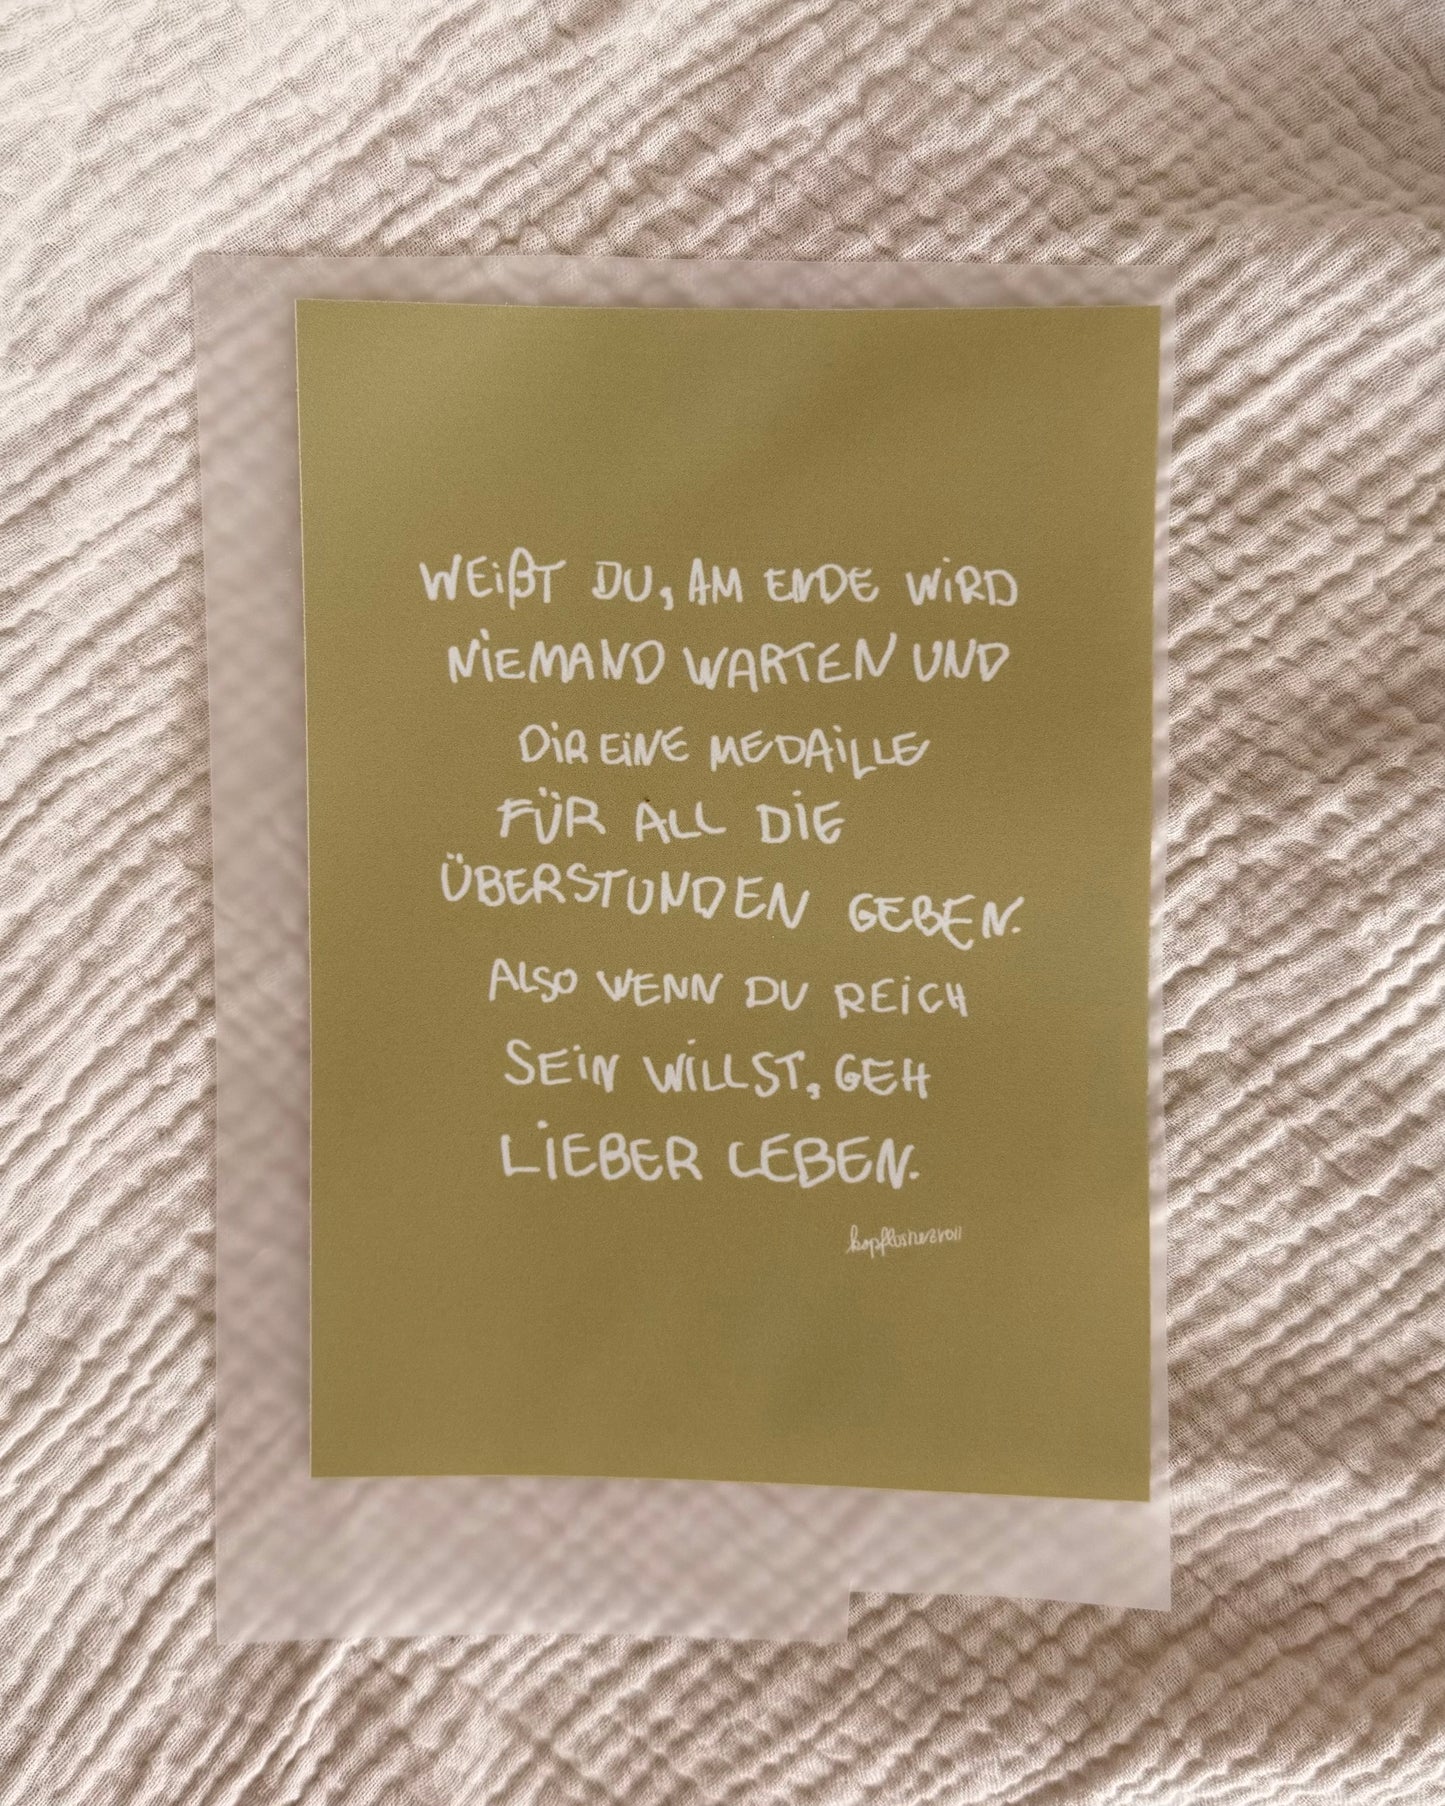 WEIßT DU, AM ENDE WIRD
NIEMAND WARTEN UND
DIR EINE MEDAILLE
FÜR ALL DIE
ÜBERSTUNDEN GEBEN.
ALSO WENN DU REICH
SEIN WILLST, GEH
LIEBER LEBEN.
kopflosherzvoll